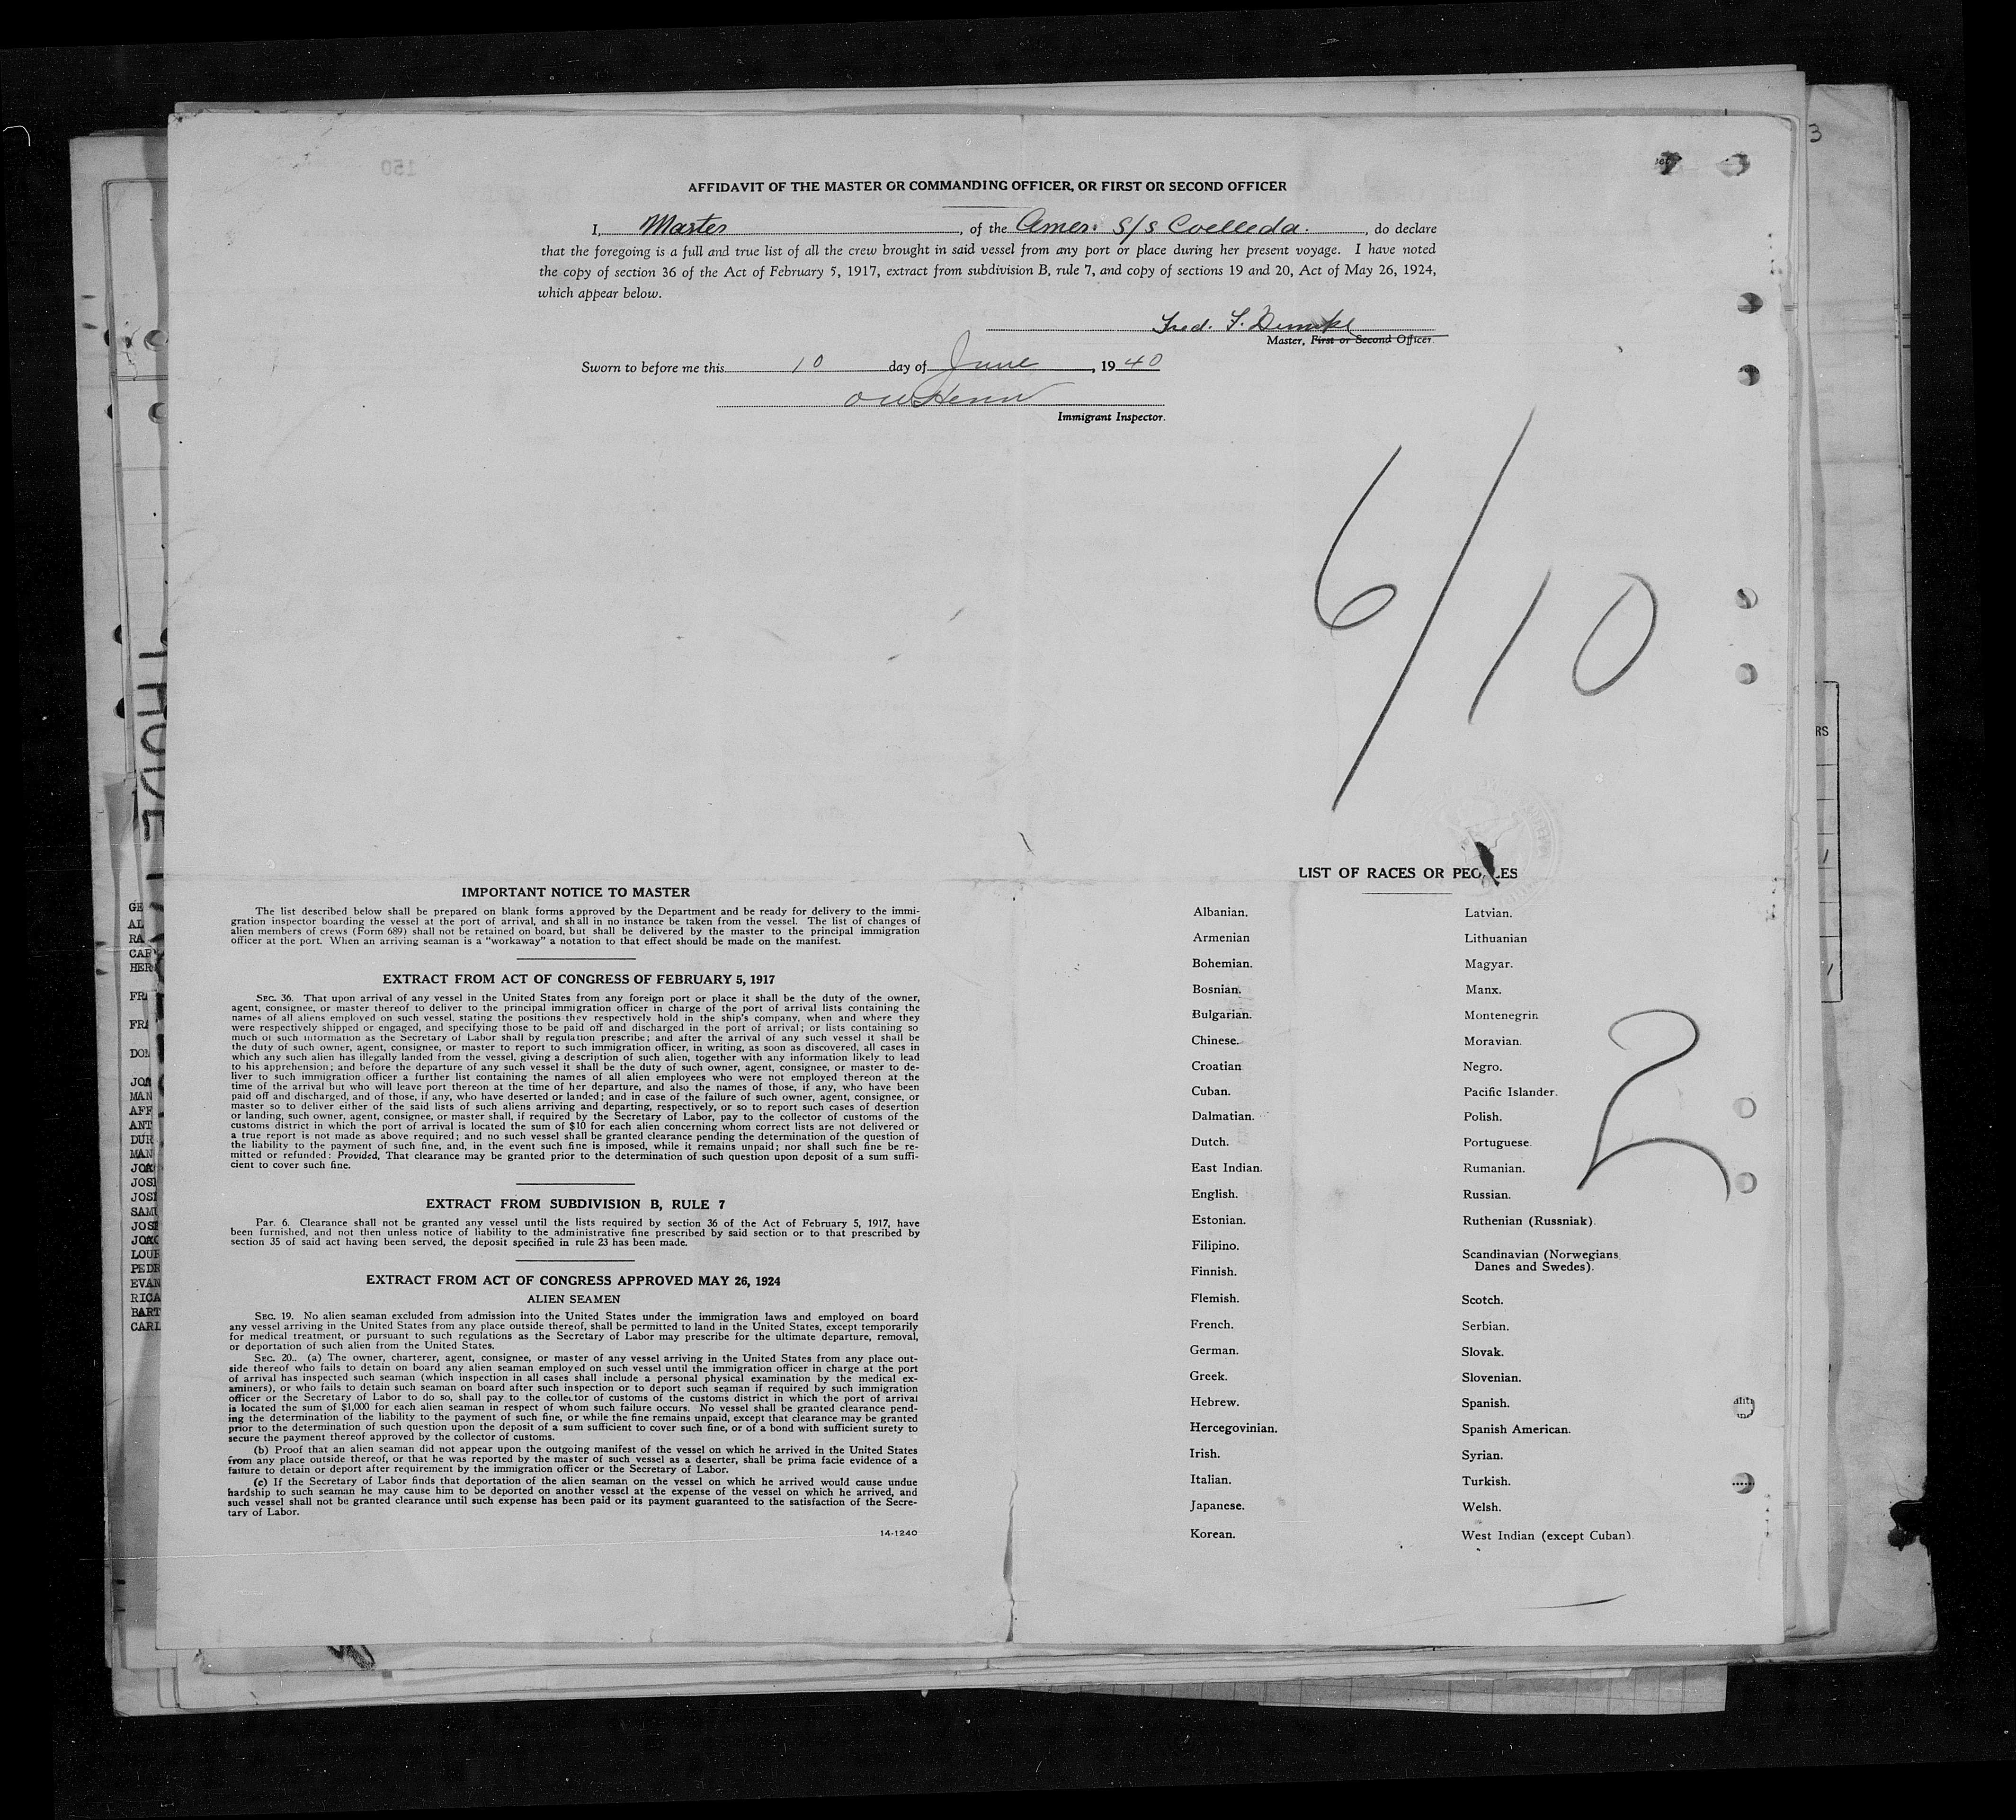 AFFIDAVIT OF THE MASTER OR COMMANDING OFFICER, OR FIRST OR SECOND OFFICER
I, Master, of the Amer. S/S Coelleda., do declare
that the foregoing is a full and true list of all the crew brought in said vessel from any port or place during her present voyage. I have noted
the copy of section 36 of the Act of February 5, 1917, extract from subdivision B, rule 7, and copy of sections 19 and 20, Act of May 26, 1924,
which appear below.
Fred. F.
Master, First or Second Officer.
Sworn to before me this 10 day of June, 1940
Immigrant Inspector.
6/10
IMPORTANT NOTICE TO MASTER
The list described below shall be prepared on blank forms approved by the Department and be ready for delivery to the immi-
gration inspector boarding the vessel at the port of arrival, and shall in no instance be taken from the vessel. The list of changes of
alien members of crews (Form 689) shall not be retained on board, but shall be delivered by the master to the principal immigration
officer at the port. When an arriving seaman is a "workaway" a notation to that effect should be made on the manifest.
EXTRACT FROM ACT OF CONGRESS OF FEBRUARY 5, 1917
SEC. 36. That upon arrival of any vessel in the United States from any foreign port or place it shall be the duty of the owner,
agent, consignee, or master thereof to deliver to the principal immigration officer in charge of the port of arrival lists containing the
names of all aliens employed on such vessel, stating the positions they respectively hold in the ship's company, when and where they
were respectively shipped or engaged, and specifying those to be paid off and discharged in the port of arrival; or lists containing so
much of such information as the Secretary of Labor shall by regulation prescribe; and after the arrival of any such vessel it shall be
the duty of such owner, agent, consignee, or master to report to such immigration officer, in writing, as soon as discovered, all cases in
which any such alien has illegally landed from the vessel, giving a description of such alien, together with any information likely to lead
to his apprehension; and before the departure of any such vessel it shall be the duty of such owner, agent, consignee, or master to de-
liver to such immigration officer a further list containing the names of all alien employees who were not employed thereon at the
time of the arrival but who will leave port thereon at the time of her departure, and also the names of those, if any, who have been
paid off and discharged, and of those, if any, who have deserted or landed; and in case of the failure of such owner, agent, consignee, or
master so to deliver either of the said lists of such aliens arriving and departing, respectively, or so to report such cases of desertion
or landing, such owner, agent, consignee, or master shall, if required by the Secretary of Labor, pay to the collector of customs of the
customs district in which the port of arrival is located the sum of $10 for each alien concerning whom correct lists are not delivered or
a true report is not made as above required; and no such vessel shall be granted clearance pending the determination of the question of
the liability to the payment of such fine, and, in the event such fine is imposed, while it remains unpaid; nor shall such fine be re-
mitted or refunded: Provided, That clearance may be granted prior to the determination of such question upon deposit of a sum suffi-
cient to cover such fine.
EXTRACT FROM SUBDIVISION B, RULE 7
Par. 6. Clearance shall not be granted any vessel until the lists required by section 36 of the Act of February 5, 1917, have
been furnished, and not then unless notice of liability to the administrative fine prescribed by said section or to that prescribed by
section 35 of said act having been served, the deposit specified in rule 23 has been made.
EXTRACT FROM ACT OF CONGRESS APPROVED MAY 26, 1924
ALIEN SEAMEN
SEC. 19. No alien seaman excluded from admission into the United States under the immigration laws and employed on board
any vessel arriving in the United States from any place outside thereof, shall be permitted to land in the United States, except temporarily
for medical treatment, or pursuant to such regulations as the Secretary of Labor may prescribe for the ultimate departure, removal,
or deportation of such alien from the United States.
SEC. 20. (a) The owner, charterer, agent, consignee, or master of any vessel arriving in the United States from any place out-
side thereof who fails to detain on board any alien seaman employed on such vessel until the immigration officer in charge at the port
of arrival has inspected such seaman (which inspection in all cases shall include a personal physical examination by the medical ex-
aminers), or who fails to detain such seaman on board after such inspection or to deport such seaman if required by such immigration
officer or the Secretary of Labor to do so, shall pay to the collector of customs of the customs district in which the port of arrival
is located the sum of $1,000 for each alien seaman in respect of whom such failure occurs. No vessel shall be granted clearance pend-
ing the determination of the liability to the payment of such fine, or while the fine remains unpaid, except that clearance may be granted
prior to the determination of such question upon the deposit of a sum sufficient to cover such fine, or of a bond with sufficient surety to
secure the payment thereof approved by the collector of customs.
(b) Proof that an alien seaman did not appear upon the outgoing manifest of the vessel on which he arrived in the United States
from any place outside thereof, or that he was reported by the master of such vessel as a deserter, shall be prima facie evidence of a
failure to detain or deport after requirement by the immigration officer or the Secretary of Labor.
(c) If the Secretary of Labor finds that deportation of the alien seaman on the vessel on which he arrived would cause undue
hardship to such seaman he may cause him to be deported on another vessel at the expense of the vessel on which he arrived, and
such vessel shall not be granted clearance until such expense has been paid or its payment guaranteed to the satisfaction of the Secre-
tary of Labor.
14-1240
LIST OF RACES OR PEOPLES
Albanian.
Armenian
Bohemian.
Bosnian.
Bulgarian.
Chinese.
Croatian
Cuban.
Dalmatian.
Dutch.
East Indian.
English.
Estonian.
Filipino.
Finnish.
Flemish.
French.
German.
Greek.
Hebrew.
Hercegovinian.
Irish.
Italian.
Japanese.
Korean.
Latvian.
Lithuanian
Magyar.
Manx.
Montenegrin
Moravian.
Negro.
Pacific Islander.
Polish.
Portuguese.
Rumanian.
Russian.
Ruthenian (Russniak).
Scandinavian (Norwegians,
Danes and Swedes).
Scotch.
Serbian.
Slovak.
Slovenian.
Spanish.
Spanish American.
Syrian.
Turkish.
Welsh.
West Indian (except Cuban).
2
3
RS
GE
AL
RA
CAR
HER
FRA
FRA
DOM
JOA
MAN
AFF
ANT
DUR
MAN
JOA
JOSE
JOSE
SAMU
JOSE
JOAO
LOUR
PEDR
EVAN
RICA
BART
CARL